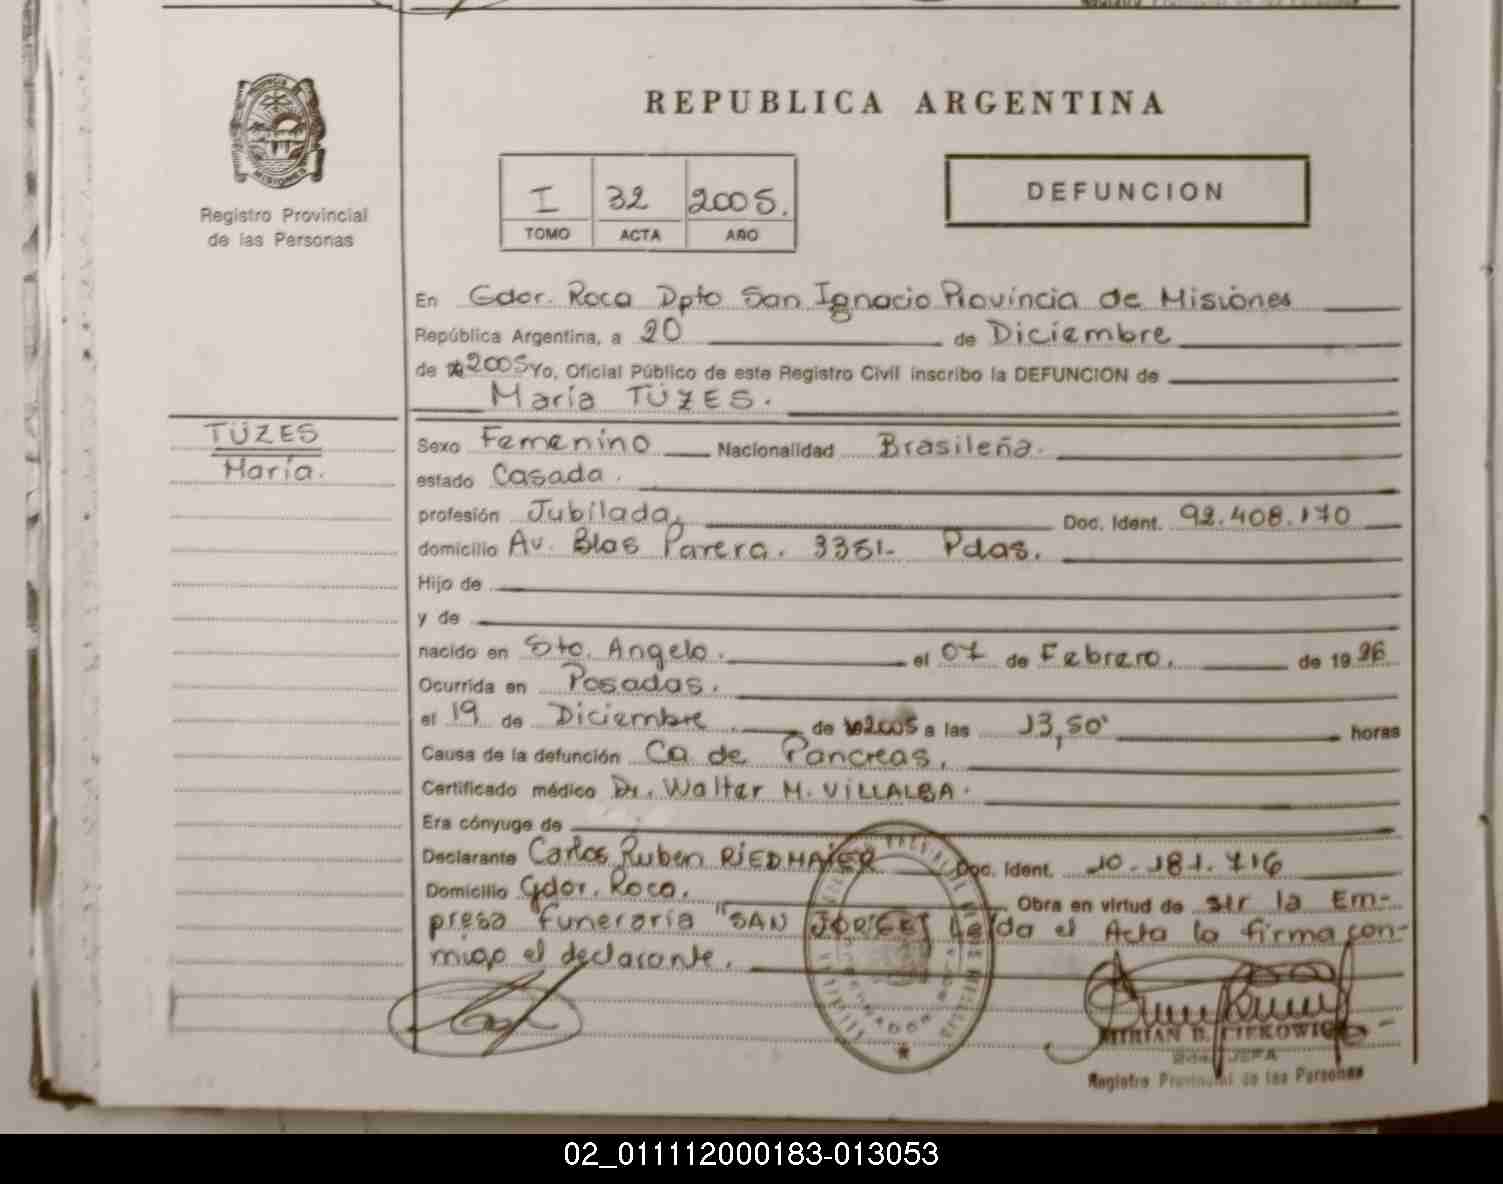 REPUBLICA ARGENTINA
MISIONES
Registro Provincial
de las Personas
I 32 2005.
TOMO ACTA AÑO
DEFUNCION
En Gdor. Roca Dpto San Ignacio Provincia de Misiones
República Argentina, a 20 de Diciembre
de 2005 Yo, Oficial Público de este Registro Civil inscribo la DEFUNCION de
María TÜZES.
TÜZES
María.
Sexo Femenino Nacionalidad Brasileña.
estado Casada.
profesión Jubilada, Doc. Ident. 92.408.170
domicilio Av. Blas Parera. 3351- Pdas.
Hijo de
y de
nacido en Sto. Angelo. el 07 de Febrero. de 19
Ocurrida en Posadas.
el 19 de Diciembre de 2005 a las 13,50' horas
Causa de la defunción Ca de Pancreas.
Certificado médico Dr. Walter M. VILLALBA.
Era cónyuge de
Declarante Carlos Ruben RIEDMAIER Doc. Ident. 10.181.716
Domicilio Gdor. Roca. Obra en virtud de ser la Em-
presa Funeraria "SAN JORGE" Leída el Acta la firma con-
migo el declarante.
MIRIAN B.
JEFA
Registro Provincial de las Personas
02_011112000183-013053